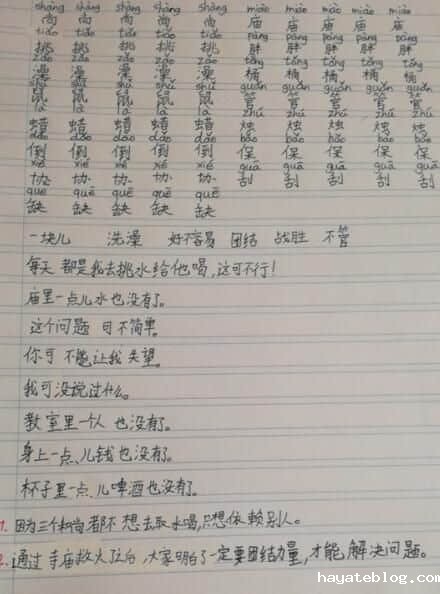 shàng shàng shàng shàng shàng miào miào miào miào miào
尚 尚 尚 尚 尚 庙 庙 庙 庙 庙
tiāo tiāo tiāo tiāo tiāo pàng pàng pàng pàng pàng
挑 挑 挑 挑 挑 胖 胖 胖 胖 胖
zǎo zǎo zǎo zǎo zǎo tǒng tǒng tǒng tǒng tǒng
澡 澡 澡 澡 澡 桶 桶 桶 桶 桶
shǔ shǔ shǔ shǔ shǔ guǎn guǎn guǎn guǎn guǎn
鼠 鼠 鼠 鼠 鼠 管 管 管 管 管
là là là là là zhú zhú zhú zhú zhú
蜡 蜡 蜡 蜡 蜡 烛 烛 烛 烛 烛
dǎo dǎo dǎo dǎo dǎo bǎo bǎo bǎo bǎo bǎo
倒 倒 倒 倒 倒 保 保 保 保 保
xié xié xié xié xié guā guā guā guā guā
协 协 协 协 协 刮 刮 刮 刮 刮
quē quē quē quē quē
缺 缺 缺 缺 缺
一块儿 洗澡 好不容易 团结 战胜 不管
每天都是我去挑水给他喝,这可不行!
庙里一点儿水也没有了。
这个问题可不简单。
你可不能让我失望。
我可没说过什么。
教室里一个人也没有了。
身上一点儿钱也没有了。
杯子里一点儿啤酒也没有了。
1. 因为三个和尚都不想去取水喝,只想依赖别人。
2. 通过寺庙救火以后,大家明白了一定要团结力量,才能解决问题。
hayateblog.com